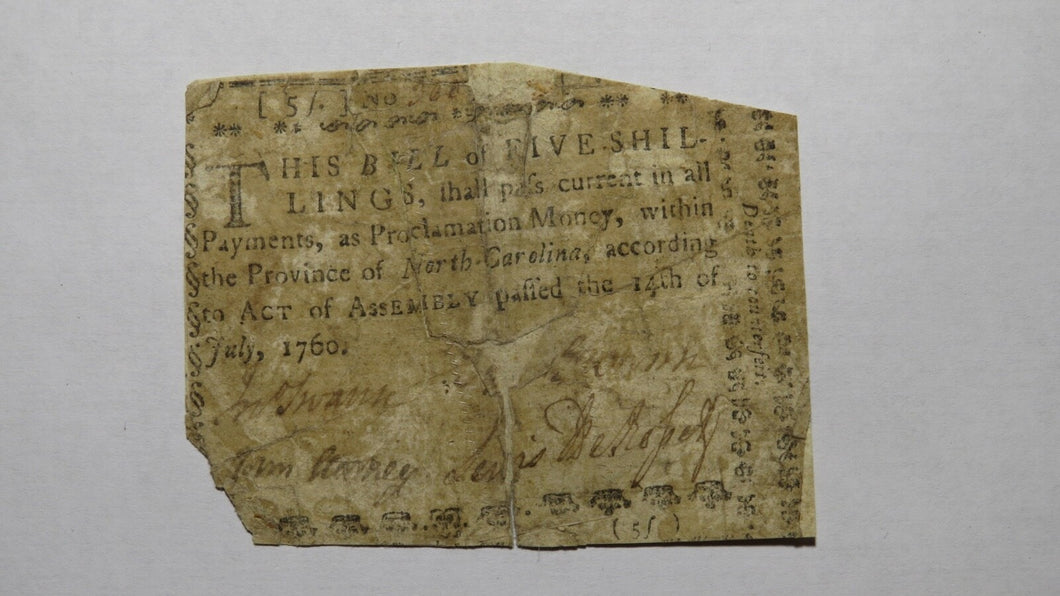 [ 5/. ] No
THIS BILL of FIVE SHIL-
LINGS, ſhall paſs current in all
Payments, as Proclamation Money, within
the Province of North-Carolina, according
to ACT of ASSEMBLY paſſed the 14th of
July, 1760.
Jno Swann
John Starkey Lewis De Rosset
( 5/ )
Death to counterfeit.